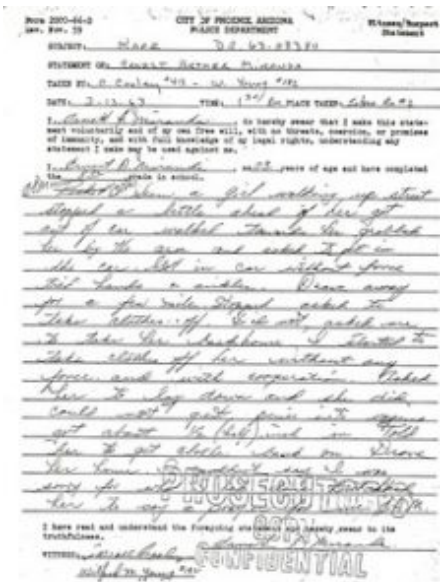 Form 2000-66-D
Rev. Nov. 59
CITY OF PHOENIX, ARIZONA
POLICE DEPARTMENT
Witness/Suspect
Statement
SUBJECT: Rape D.R. 63-08380
STATEMENT OF: ERNEST ARTHUR MIRANDA
TAKEN BY: C. Cooley #413 - W. Young #182
DATE: 3-13-63 TIME: 1:30 P.M. PLACE TAKEN: Room #2
I, Ernest A. Miranda, do hereby swear that I make this state-
ment voluntarily and of my own free will, with no threats, coercion, or promises
of immunity, and with full knowledge of my legal rights, understanding any
statement I make may be used against me.
I, Ernest A. Miranda, am 23 years of age and have completed
the 8th grade in school.
a girl walking up street
stopped a little ahead of her got
out of car walked towards her grabbed
her by the arm and asked to get in
the car. Got in car without force
tied hands & ankles. Drove away
for a few miles. Stopped asked to
take clothes off. Did not, asked me
to take her back home. I started to
take clothes off her without any
force and with cooperation. Asked
her to lay down and she did
could not get penis into vagina
got about 1/2 (half) inch in. Told
her to get clothes back on. Drove
her home. I couldn't say I was
sorry for
her to say a prayer for me.
I have read and understand the foregoing statement and hereby swear to its
truthfulness.
PROSECUTING
COPY
CONFIDENTIAL
WITNESS: Carroll Cooley Ernest A. Miranda
Wilfred M. Young #182